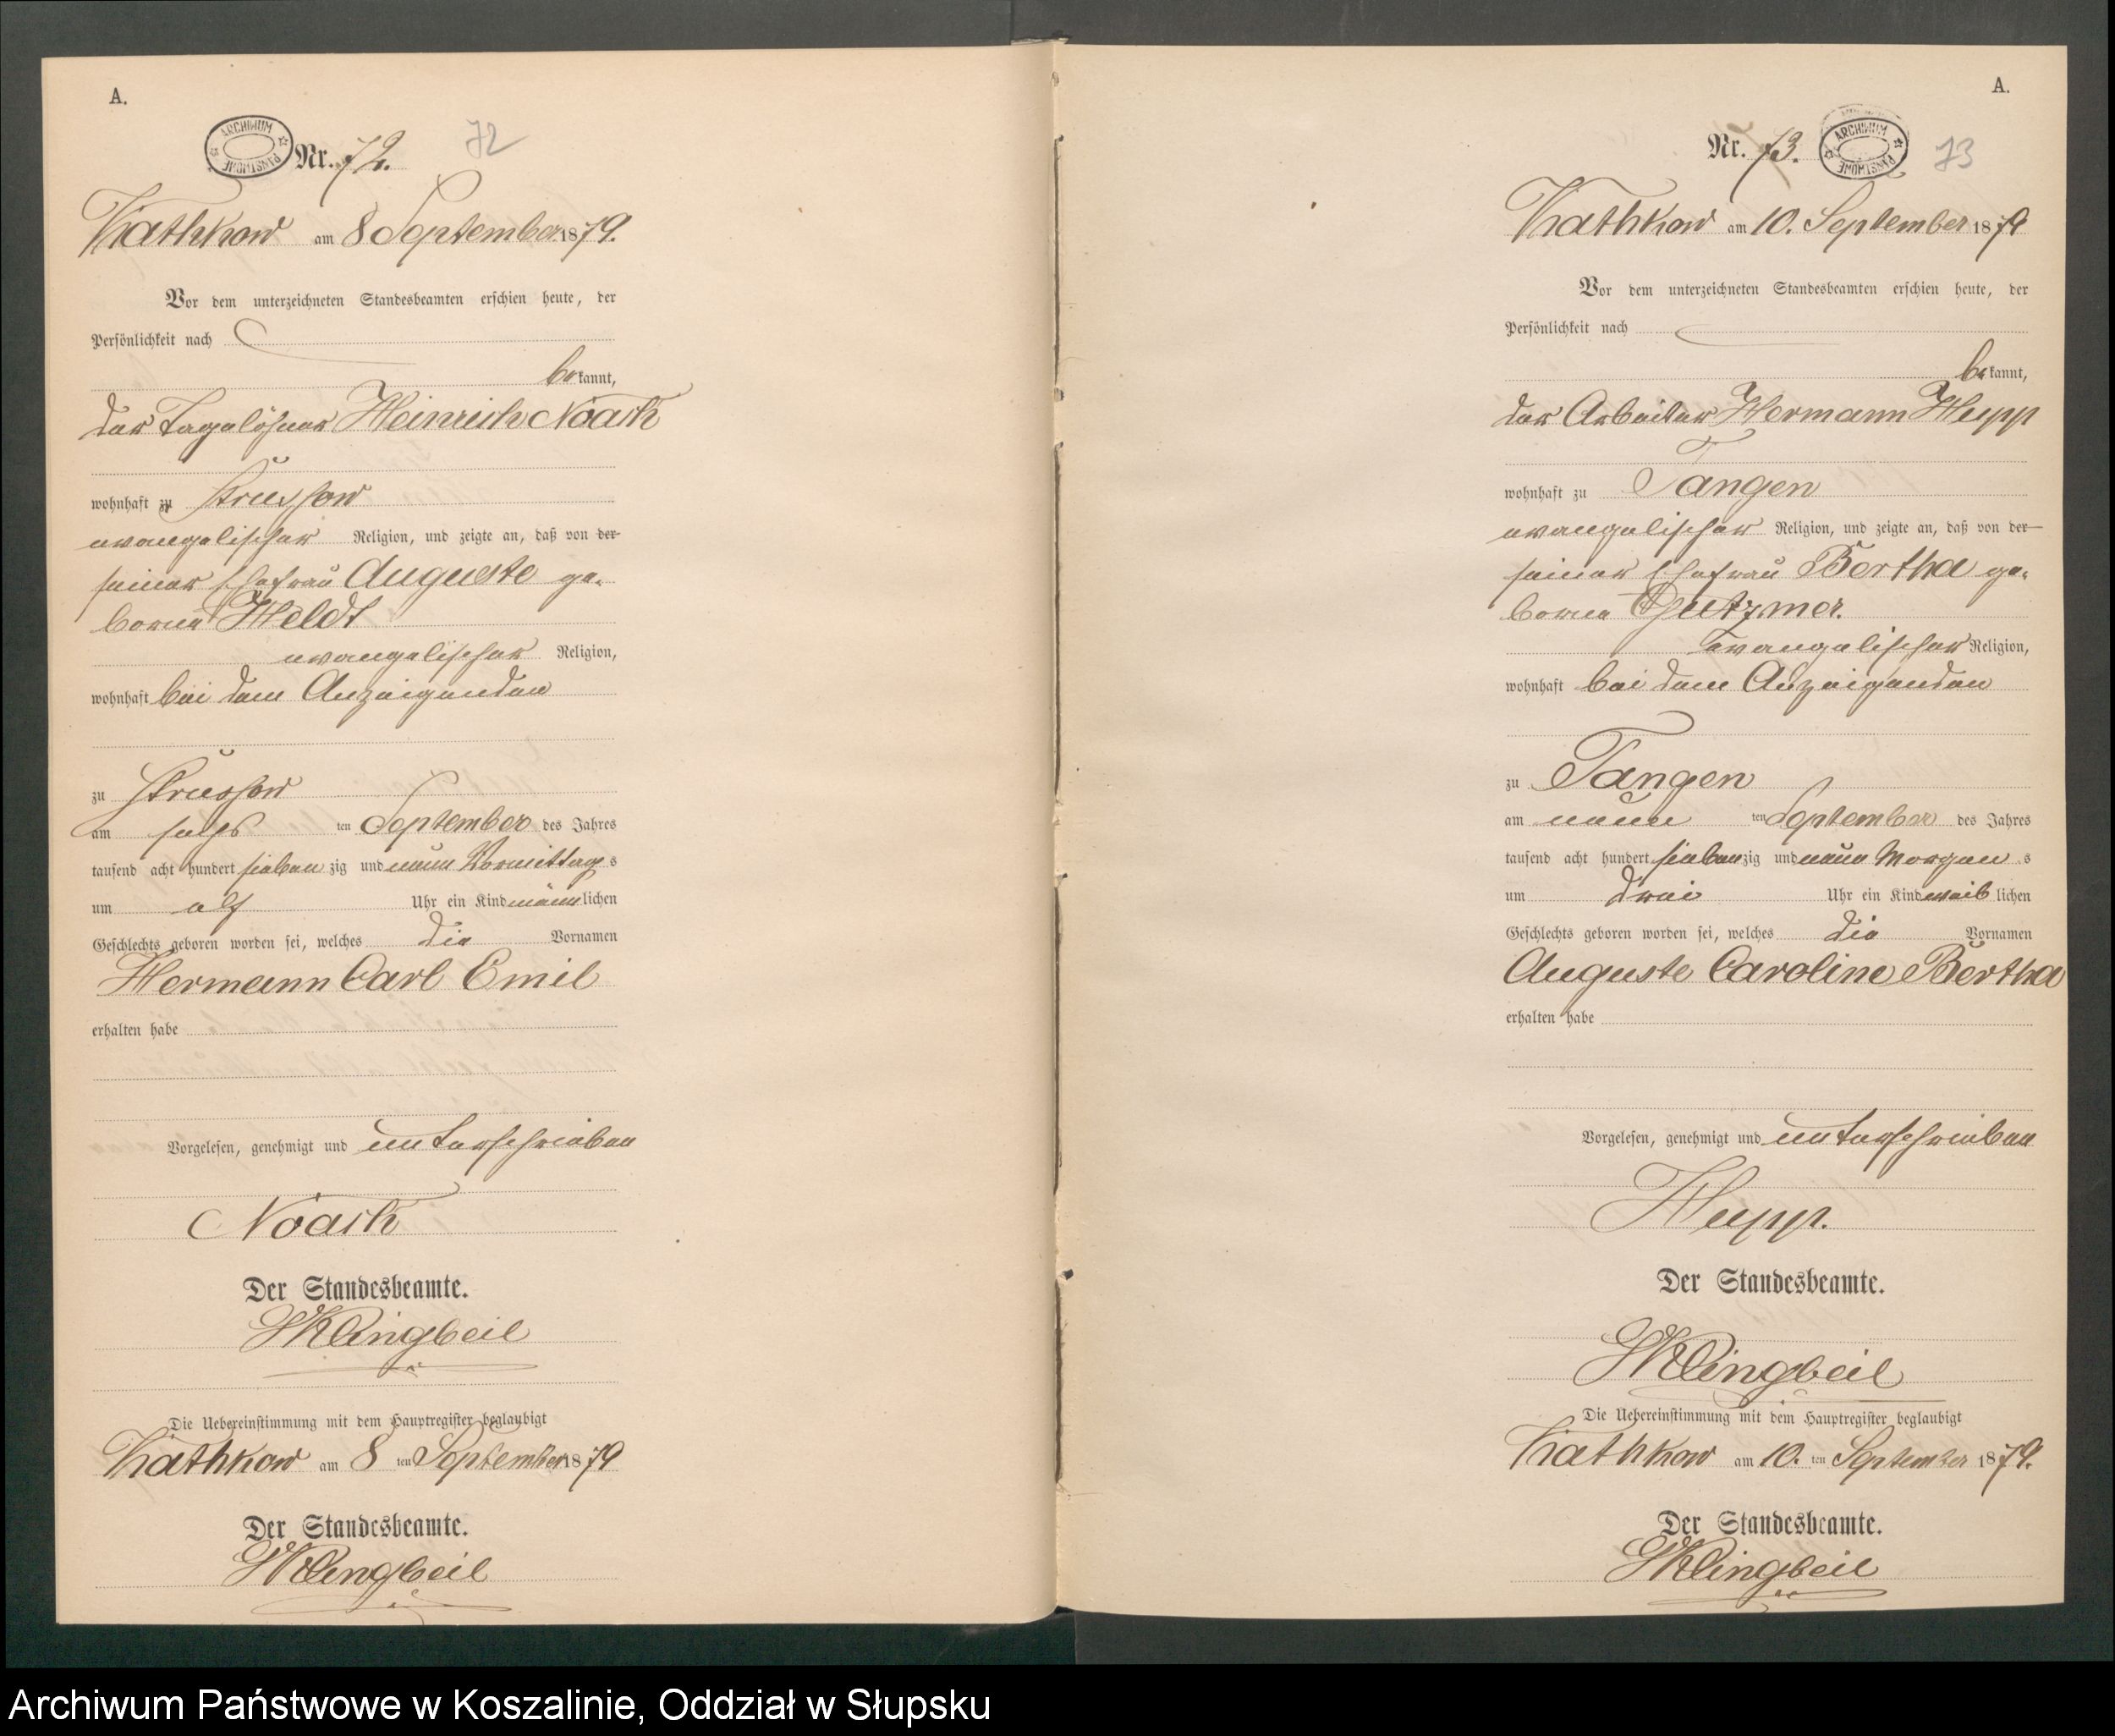 A.
ARCHIWUM PAŃSTWOWE
Nr. 72.
72
Kathkow am 8 September 1879.
Vor dem unterzeichneten Standesbeamten erschien heute, der
Persönlichkeit nach
bekannt,
der Tagelöhner Heinrich Noack
wohnhaft zu Strussow
evangelischer Religion, und zeigte an, daß von der
seiner Ehefrau Auguste ge-
borne Heldt
evangelischer Religion,
wohnhaft bei dem Anzeigenden
zu Strussow
am sechs ten September des Jahres
tausend acht hundert siebenzig und neun Vormittags
um elf Uhr ein Kind männlichen
Geschlechts geboren worden sei, welches die Vornamen
Hermann Carl Emil
erhalten habe
Vorgelesen, genehmigt und unterschrieben
Noack
Der Standesbeamte.
Klingbeil
Die Uebereinstimmung mit dem Hauptregister beglaubigt
Kathkow am 8 ten September 1879
Der Standesbeamte.
Klingbeil
A.
Nr. 73.
ARCHIWUM PAŃSTWOWE
73
Kathkow am 10. September 1879
Vor dem unterzeichneten Standesbeamten erschien heute, der
Persönlichkeit nach
bekannt,
der Arbeiter Hermann Hupp
wohnhaft zu Tangen
evangelischer Religion, und zeigte an, daß von der
seiner Ehefrau Bertha ge-
borne Gutzmer.
evangelischer Religion,
wohnhaft bei dem Anzeigenden
zu Tangen
am neun ten September des Jahres
tausend acht hundert siebenzig und neun Morgens
um drei Uhr ein Kind weiblichen
Geschlechts geboren worden sei, welches die Vornamen
Auguste Caroline Bertha
erhalten habe
Vorgelesen, genehmigt und unterschrieben
Hupp.
Der Standesbeamte.
Klingbeil
Die Uebereinstimmung mit dem Hauptregister beglaubigt
Kathkow am 10. ten September 1879.
Der Standesbeamte.
Klingbeil
Archiwum Państwowe w Koszalinie, Oddział w Słupsku